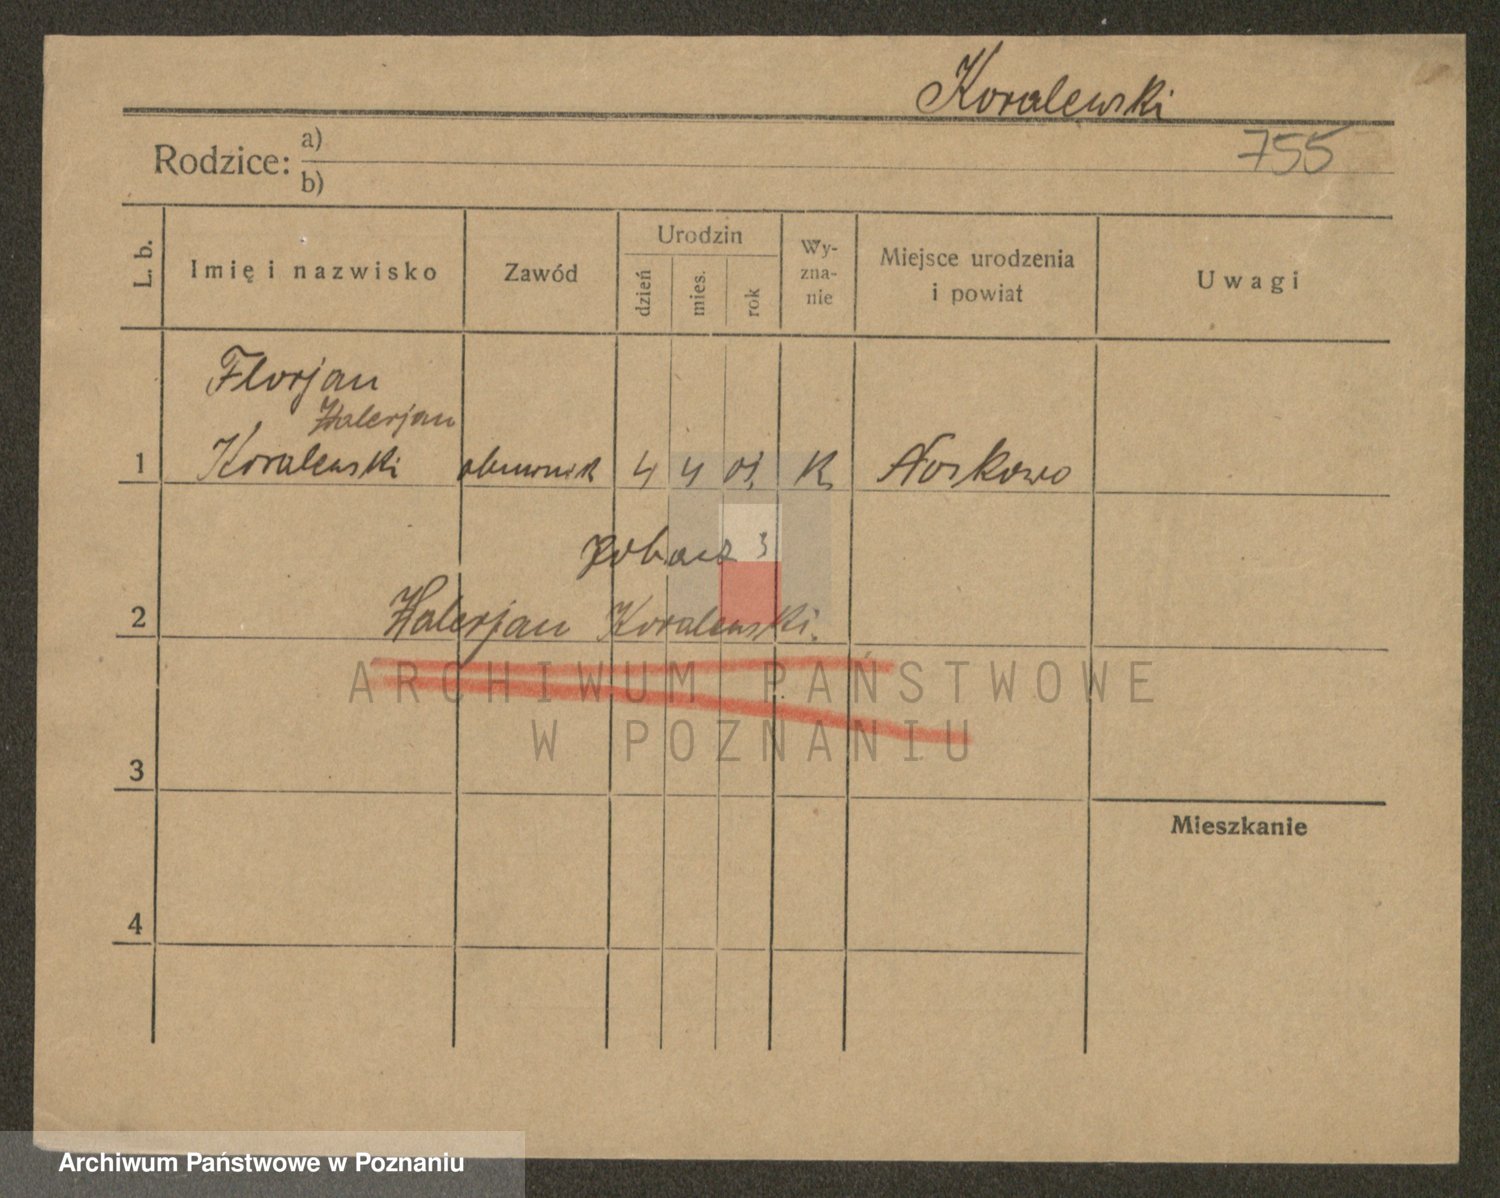 Koralewski
755
Rodzice: a)
b)
L. b. Imię i nazwisko Zawód Urodzin dzień mies. rok Wy-
zna-
nie Miejsce urodzenia
i powiat Uwagi
Florjan
Walerjan
1 Koralewski obuwnik 4 4 01. K. Noskowo
zobacz
2 Walerjan Koralewski.
ARCHIWUM PAŃSTWOWE
W POZNANIU
3
Mieszkanie
4
Archiwum Państwowe w Poznaniu